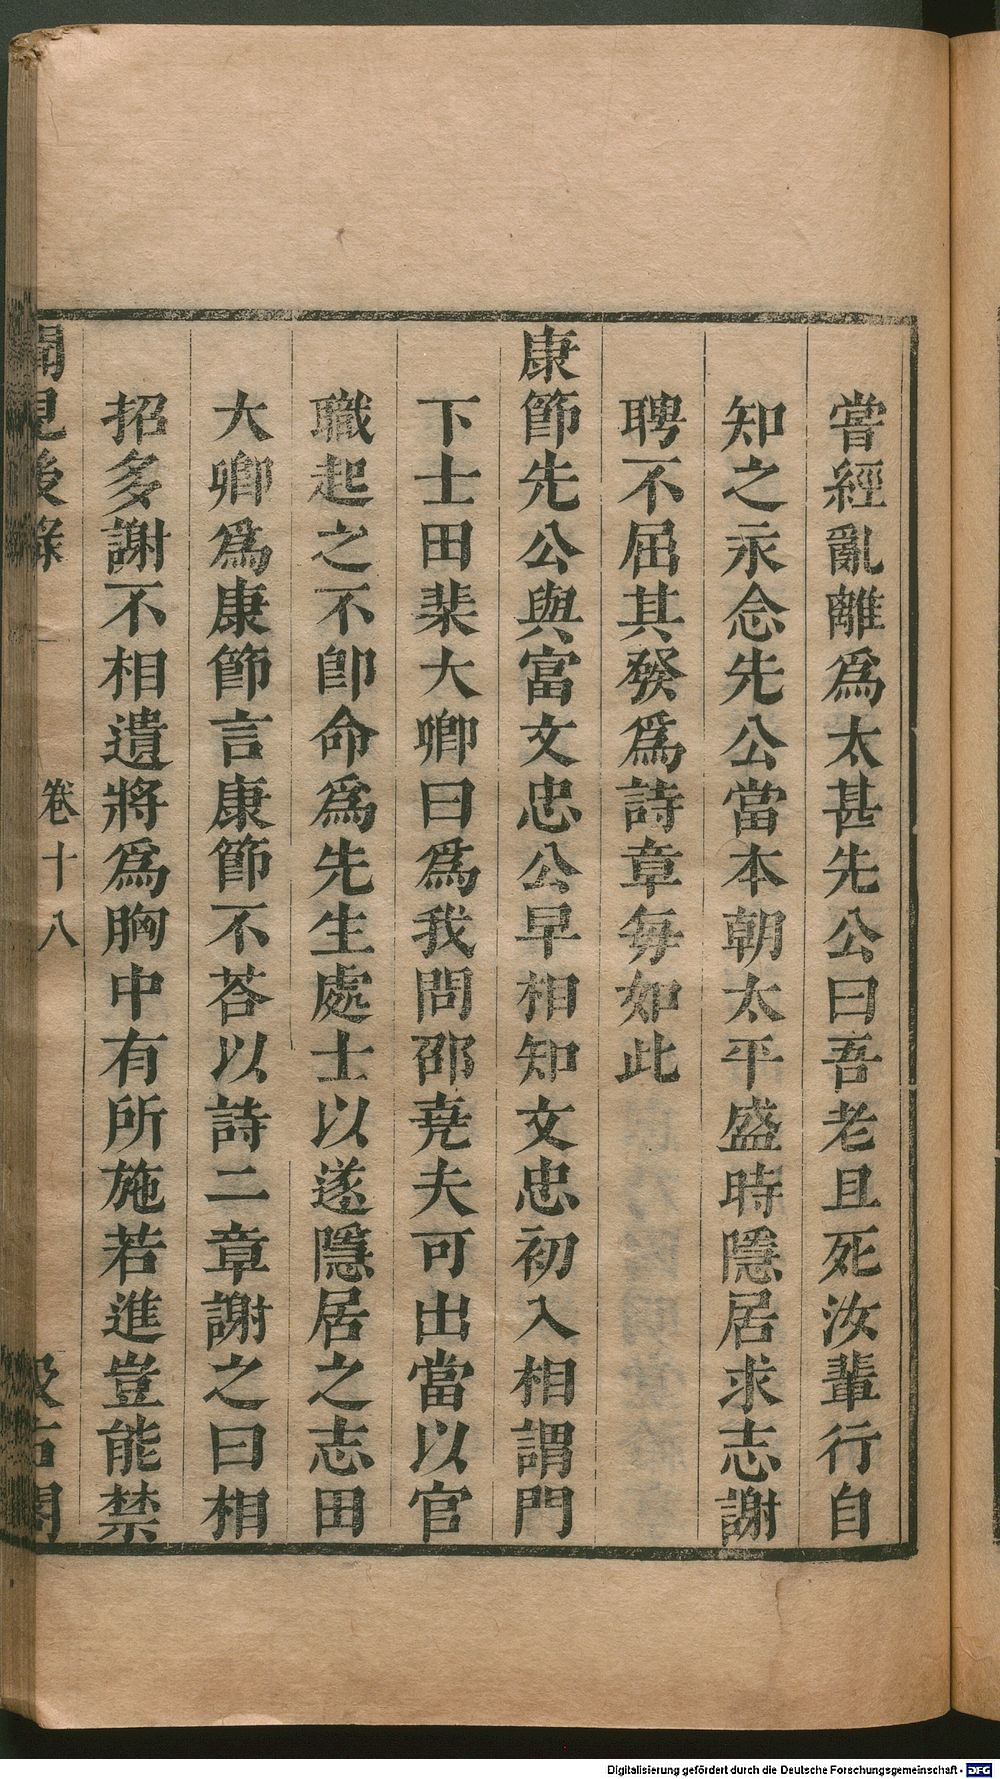 嘗經亂離爲太甚先公曰吾老且死汝輩行自
知之永念先公當本朝太平盛時隱居求志謝
聘不屈其發爲詩章每如此
康節先公與富文忠公早相知文忠初入相謂門
下士田棐大卿曰爲我問邵堯夫可出當以官
職起之不卽命爲先生處士以遂隱居之志田
大卿爲康節言康節不荅以詩二章謝之曰相
招多謝不相遺將爲胸中有所施若進豈能禁
聞見後錄 卷十八 汲古閣
Digitalisierung gefördert durch die Deutsche Forschungsgemeinschaft - DFG